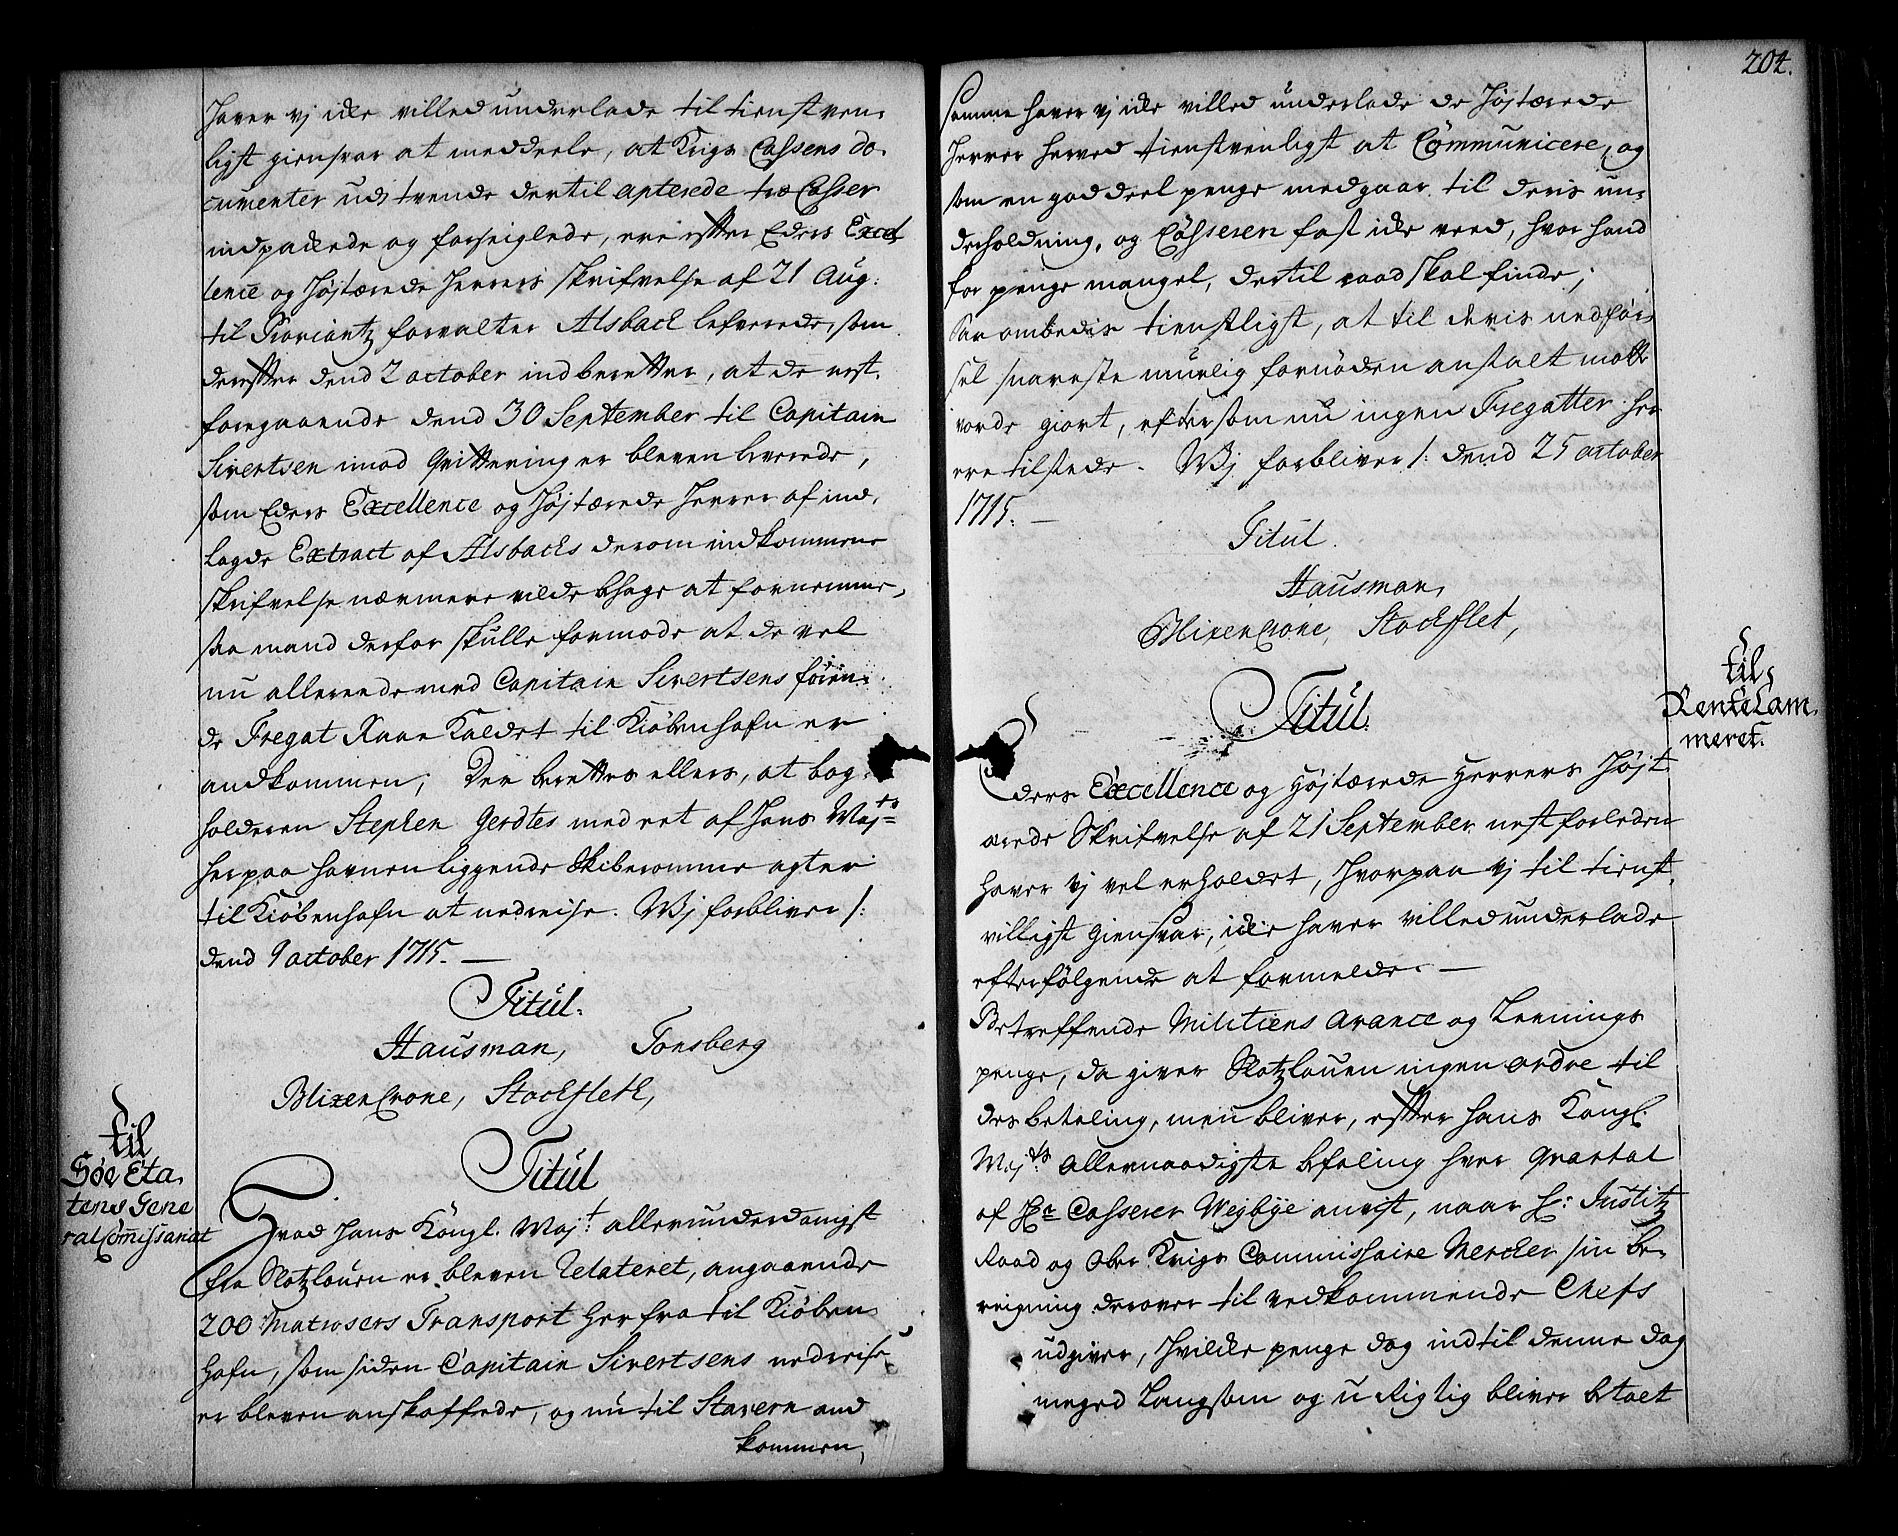 hafver vj icke villed underlade til tienstven-
ligst giensvar at meddeele, at Krigs Cassens do-
cumenter udj tvende dertil apterede træ Casser
indpakede og forseiglede, ere efter Eders Excel
lence og Højtærede Herrers skrifvelse af 21 Aug:
til Proviantz forvalter Alsback lefverede, som
derefter dend 2 october indberetter, at de nest
foregaaende dend 30 September til Capitain
Sivertsen imod Qvittering er bleven leverede,
som Eders Excellence og Højtærede Herrer af ind-
lagde Extract af Alsbachs derom indkommene
skrifvelse nærmere vilde behage at fornemme,
saa mand derfor skulle formode at de vel
nu allereede med Capitain Sivertsens føren-
de Fregat Raae Kaldet til Kiöbenhafn er
andkommen; Der berettes ellers, at bog-
holderen Stephen Gerdtes med et af Hans Majts
her paa hafnen liggende Skiberomme agter
til Kiöbenhafn at nedreise. Wj forbliver /:
dend 9 october 1715. —
Titul.
Hausman, Tonsberg
Blixencrone, Stockfleth,
til
Søe Eta-
tens Gene
ral Commissariat
Titul
Hvad Hans Kongl. Majt: allerunderdanigst
fra Slotzlouen er bleven Relateret, angaaende
200 Matrosers Transport her fra til Kiöben
hafn, som siden Capitain Sivertsens nedreise
er bleven anskaffede, og nu til Stavern and
kommen,
204.
Samme hafver vj icke villed underlade de Højtærede
Herrer herved tienstvenligst at Communicere, og
som en god deel penge medgaar til deris un-
derholdning, og Casseren fast icke veed, hvor hand
for penge mangel, dertil raad skal finde;
Saa ombedis tienstligst, at til deris nedför-
sel snareste muelig fornöden anstalt motte
vorde giort, eftersom nu ingen Fregatter her
ere tilstede. Wj forbliver /: dend 25 october
1715. —
Titul.
Hausman,
Blixencrone, Stockflet,
til
Rentekam
meret.
Titul.
Eders Excellence og Højtærede Herrers Højt
ærede Skrifvelse af 21 September nestforleden
hafver vj vel erholdet, hvorpaa vj til tienst
villigst giensvar, icke hafver villed underlade
efterfölgende at formelde. —
Betreffende Militiens avance og Lennings
penge, da giver Slotzlouen ingen ordre til
des betaling, men bliver, efter Hans Kongl.
Majts: allernaadigste befaling hver Qvartal
af Hr Casserer Wejbye anvist, naar H: Justitz
Raad og Ober Krigs Commissaire Nercker sin be-
reigning derover til vedkommende Chefs
udgiver, hvilcke penge dog indtil denne dag
meged Langsom og u Rigtig bliver betalt